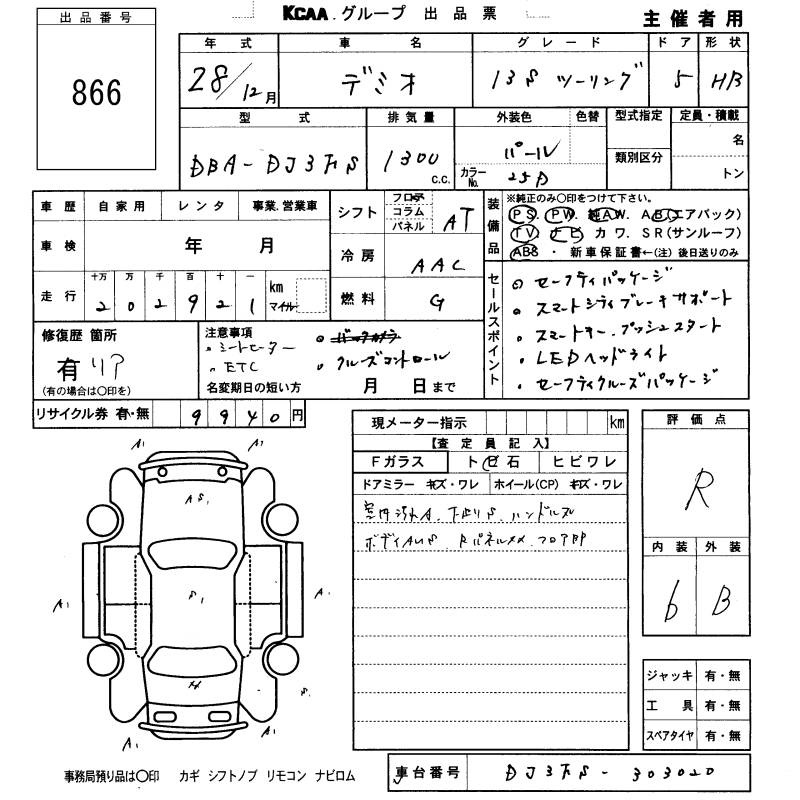 出品番号
KCAA.グループ 出品票
主催者用
866
年式 車名 グレード ドア 形状
28/12月 デミオ 13S ツーリング 5 HB
型式 排気量 外装色 色替 型式指定 定員・積載
DBA-DJ3FS 1300 C.C. パール 名
カラーNo. 25D 類別区分 トン
車歴 自家用 レンタ 事業.営業車
シフト フロア コラム パネル AT
装備品 ※純正のみ〇印をつけて下さい。
PS. PW. 純AW. AB.(エアバック)
TV ナビ カワ. SR(サンルーフ)
ABS ・ 新車保証書←(注)後日送りのみ
車検 年 月
冷房 AAC
走行 十万 万 千 百 十 一
2 0 2 9 2 1 km マイル
燃料 G
セールスポイント
セーフティパッケージ
スマートシティブレーキサポート
スマートキー.プッシュスタート
LEDヘッドライト
セーフティクルーズパッケージ
修復歴 箇所
有 リア
(有の場合は〇印を)
注意事項
シートヒーター
ETC
バックカメラ
クルーズコントロール
名変期日の短い方 月 日まで
リサイクル券 有・無 9940円
現メーター指示 km
【査定員記入】
Fガラス トビ石 ヒビワレ
ドアミラー キズ・ワレ ホイール(CP) キズ・ワレ
室内汚れA.下廻りS.ハンドルス
ボディAUS. RパネルXX.フロア
評価点
R
内装 外装
6 B
A1
A1
AS1
A1
S1
A1
XX
S
A1
A1
ジャッキ 有・無
工具 有・無
スペアタイヤ 有・無
事務局預り品は〇印 カギ シフトノブ リモコン ナビロム
車台番号 DJ3FS-303020